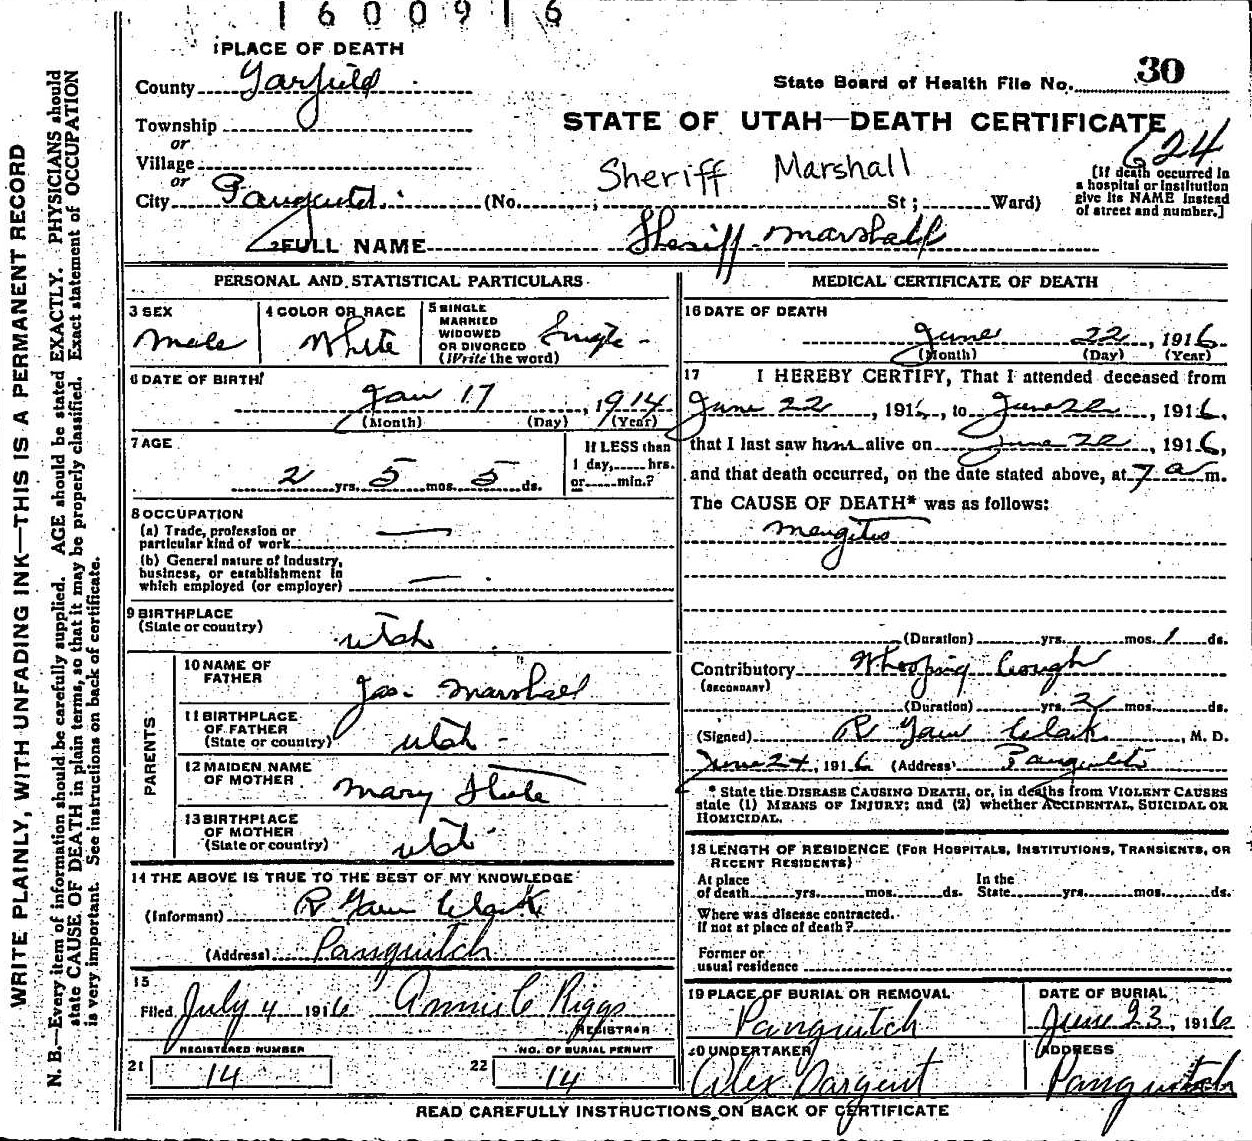 1600916
1 PLACE OF DEATH
County Garfield
State Board of Health File No. 30
Township
or
Village
or
City Panguitch
STATE OF UTAH—DEATH CERTIFICATE
624
Sheriff Marshall
(No. , St; Ward)
[If death occurred in
a hospital or institution
give its NAME instead
of street and number.]
2 FULL NAME Sheriff Marshall
PERSONAL AND STATISTICAL PARTICULARS
3 SEX
Male
4 COLOR OR RACE
White
5 SINGLE
MARRIED
WIDOWED
OR DIVORCED
(Write the word)
Single
6 DATE OF BIRTH
Jan 17, 1914
(Month) (Day) (Year)
7 AGE
2 yrs. 5 mos. 5 ds.
If LESS than
1 day, hrs.
or min.?
8 OCCUPATION
(a) Trade, profession or
particular kind of work —
(b) General nature of industry,
business, or establishment in
which employed (or employer) —
9 BIRTHPLACE
(State or country)
Utah
PARENTS
10 NAME OF
FATHER
Jas. Marshall
11 BIRTHPLACE
OF FATHER
(State or country)
Utah
12 MAIDEN NAME
OF MOTHER
Mary
13 BIRTHPLACE
OF MOTHER
(State or country)
Utah
14 THE ABOVE IS TRUE TO THE BEST OF MY KNOWLEDGE
(Informant) R Garn Clark
(Address) Panguitch
15
Filed July 4 1916 Annie C Riggs
REGISTRAR
REGISTERED NUMBER
21 14
NO. OF BURIAL PERMIT
22 14
MEDICAL CERTIFICATE OF DEATH
16 DATE OF DEATH
June 22, 1916
(Month) (Day) (Year)
17 I HEREBY CERTIFY, That I attended deceased from
June 22, 1916, to June 22, 1916,
that I last saw him alive on June 22, 1916,
and that death occurred, on the date stated above, at 7 a m.
The CAUSE OF DEATH* was as follows:
Mengitis
(Duration) yrs. mos. 1 ds.
Contributory Whooping Cough
(SECONDARY)
(Duration) yrs. 2 mos. ds.
(Signed) R Garn Clark, M. D.
June 24, 1916 (Address) Panguitch
* State the DISEASE CAUSING DEATH, or, in deaths from VIOLENT CAUSES
state (1) MEANS OF INJURY; and (2) whether ACCIDENTAL, SUICIDAL OR
HOMICIDAL.
18 LENGTH OF RESIDENCE (FOR HOSPITALS, INSTITUTIONS, TRANSIENTS, OR
RECENT RESIDENTS)
At place
of death yrs. mos. ds.
In the
State yrs. mos. ds.
Where was disease contracted.
If not at place of death?
Former or
usual residence
19 PLACE OF BURIAL OR REMOVAL
Panguitch
DATE OF BURIAL
June 23, 1916
20 UNDERTAKER
Alex Sargent
ADDRESS
Panguitch
READ CAREFULLY INSTRUCTIONS ON BACK OF CERTIFICATE
WRITE PLAINLY, WITH UNFADING INK—THIS IS A PERMANENT RECORD
N. B.—Every item of information should be carefully supplied. AGE should be stated EXACTLY. PHYSICIANS should
state CAUSE OF DEATH in plain terms, so that it may be properly classified. Exact statement of OCCUPATION
is very important. See instructions on back of certificate.